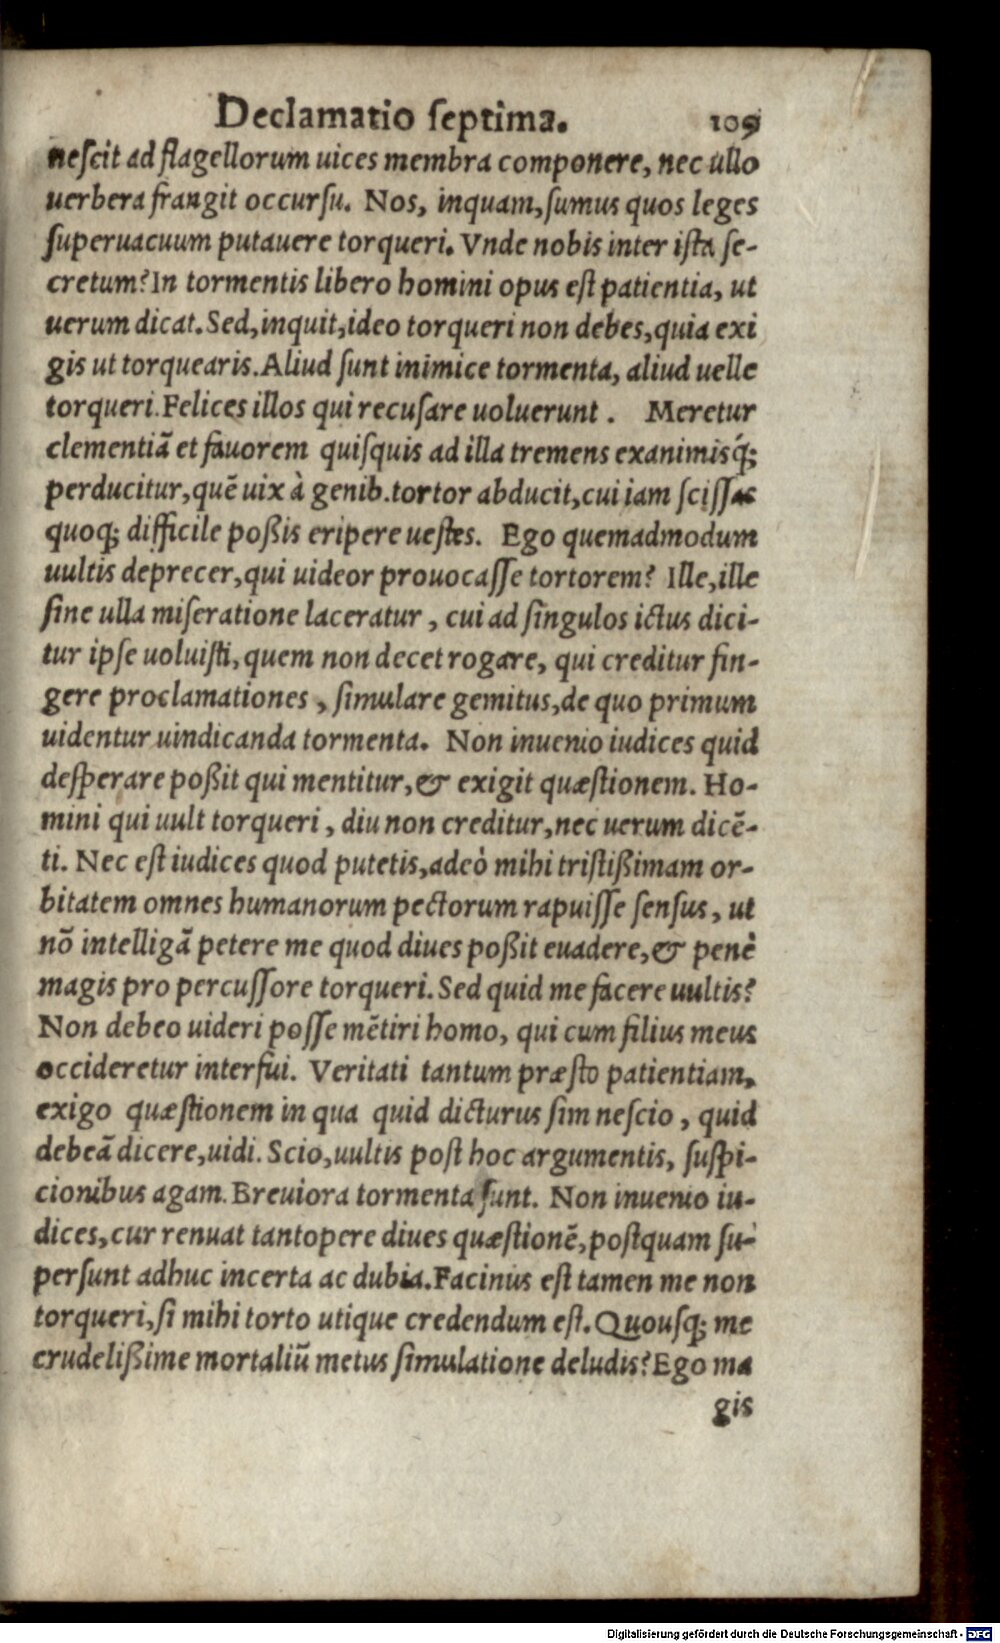 Declamatio ſeptima. 109
neſcit ad flagellorum uices membra componere, nec ullo
uerbera frangit occurſu. Nos, inquam, ſumus quos leges
ſuperuacuum putauere torqueri. Vnde nobis inter iſta ſe-
cretum? In tormentis libero homini opus eſt patientia, ut
uerum dicat. Sed, inquit, ideo torqueri non debes, quia exi
gis ut torquearis. Aliud ſunt inimice tormenta, aliud uelle
torqueri. Felices illos qui recuſare uoluerunt. Meretur
clementiā et fauorem quiſquis ad illa tremens exanimisq́;
perducitur, quē uix à genib. tortor abducit, cui iam ſciſſas
quoq; difficile poßis eripere ueſtes. Ego quemadmodum
uultis deprecer, qui uideor prouocaſſe tortorem? Ille, ille
ſine ulla miſeratione laceratur, cui ad ſingulos ictus dici-
tur ipſe uoluiſti, quem non decet rogare, qui creditur fin-
gere proclamationes, ſimulare gemitus, de quo primum
uidentur uindicanda tormenta. Non inuenio iudices quid
deſperare poßit qui mentitur, & exigit quæſtionem. Ho-
mini qui uult torqueri, diu non creditur, nec uerum dicē-
ti. Nec eſt iudices quod putetis, adeò mihi triſtißimam or-
bitatem omnes humanorum pectorum rapuiſſe ſenſus, ut
nō intelligā petere me quod diues poßit euadere, & penè
magis pro percuſſore torqueri. Sed quid me facere uultis?
Non debeo uideri poſſe mētiri homo, qui cum filius meus
occideretur interfui. Veritati tantum præſto patientiam,
exigo quæſtionem in qua quid dicturus ſim neſcio, quid
debeā dicere, uidi. Scio, uultis poſt hoc argumentis, ſuſpi-
cionibus agam. Breuiora tormenta ſunt. Non inuenio iu-
dices, cur renuat tantopere diues quæſtionē, poſtquam ſu-
perſunt adhuc incerta ac dubia. Facinus eſt tamen me non
torqueri, ſi mihi torto utique credendum eſt. Quouſq; me
crudelißime mortaliū metus ſimulatione deludis? Ego ma
gis
Digitalisierung gefördert durch die Deutsche Forschungsgemeinschaft - DFG